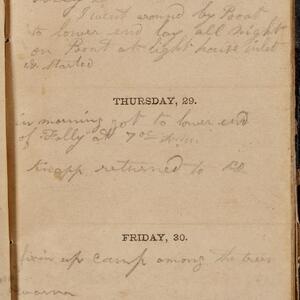 I went around by Boat
to lower end lay all night
on Boat at light house inlet
& started
THURSDAY, 29.
in morning got to lower end
of Folly at 7 oc A.M.
Knapp returned to
FRIDAY, 30.
fixin up camp among the trees